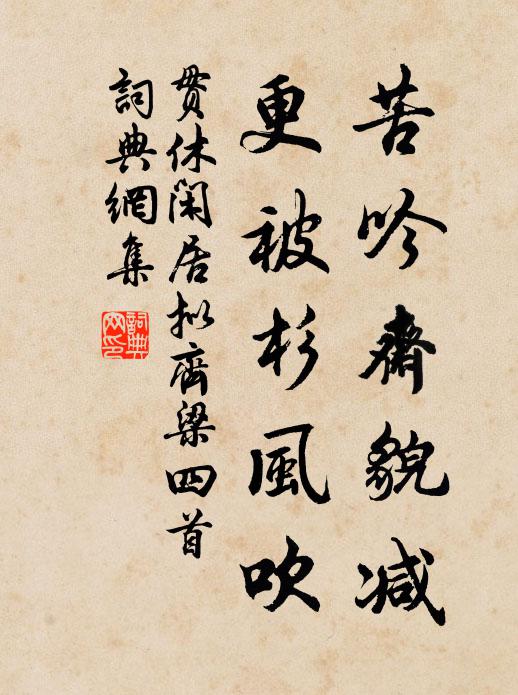 苦吟齋貌減
更被杉風吹
貫休閑居拟齊梁四首
詞典網集
詞典
网印